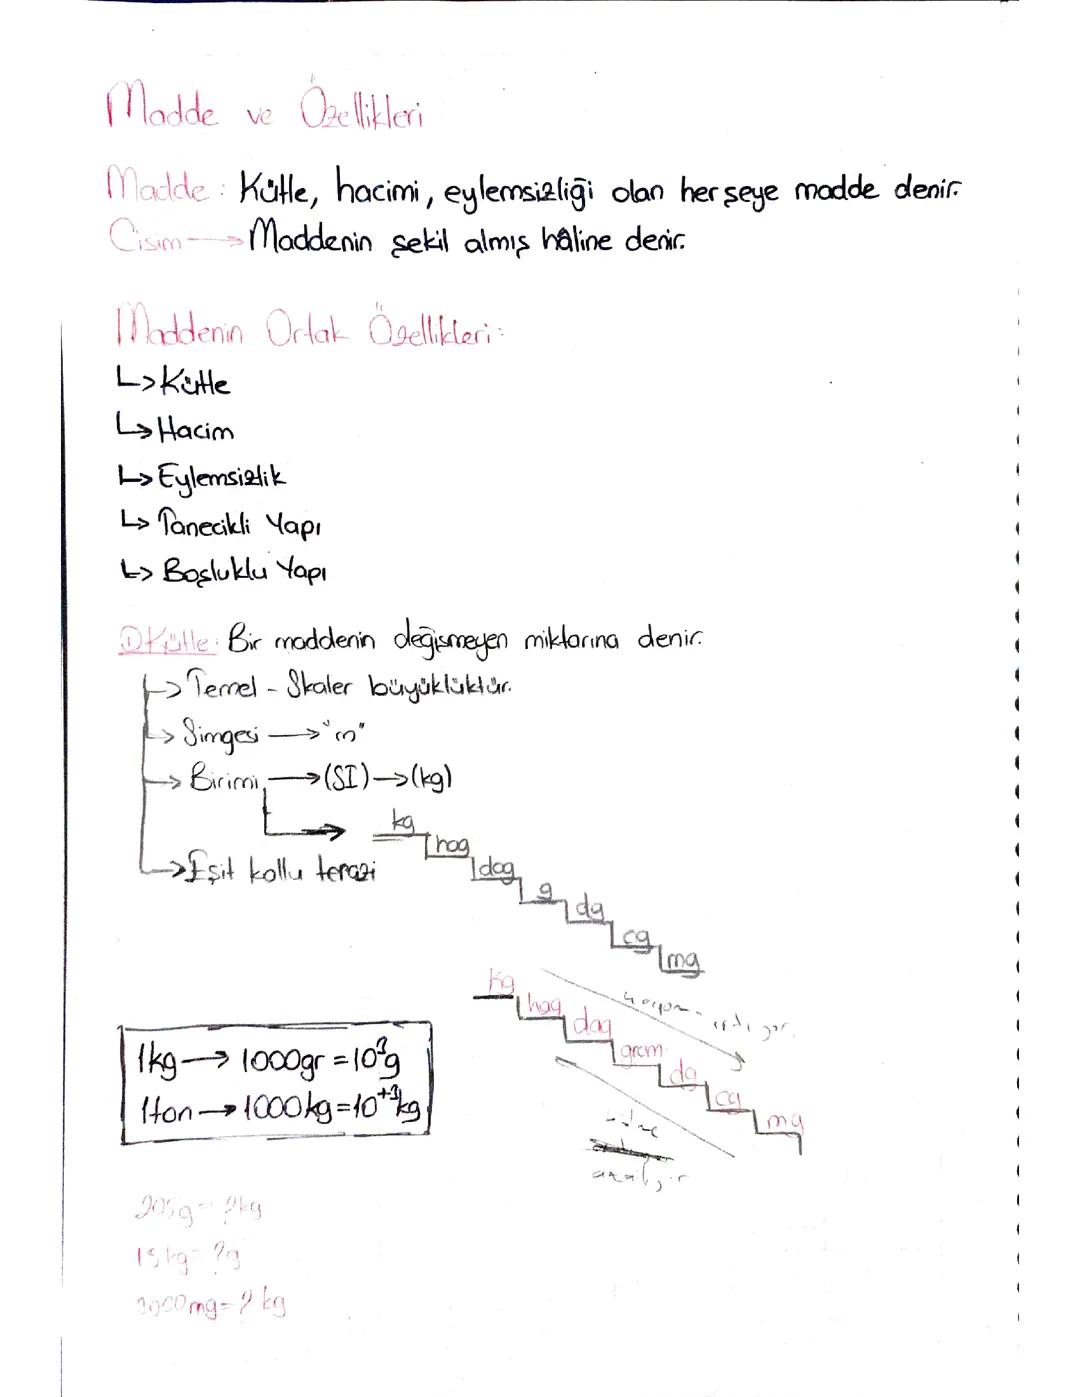 Madde ve Özellikleri
Madde: Kütle, hacimi, eylemsizliği olan her şeye madde denir.
Cisim → Maddenin şekil almış hâline denir.
Maddenin Ortak Özellikleri:
↳ Kütle
↳ Hacim
↳ Eylemsizlik
↳ Tanecikli Yapı
↳ Boşluklu Yapı
① Kütle: Bir maddenin değişmeyen miktarına denir.
→ Temel - Skaler büyüklüktür.
→ Simgesi → "m"
→ Birimi → (SI) → (kg)
kg
hag
→ Eşit kollu terazi
dag
g
dg
cg
mg
kg
hag
dag
gram
dg
cg
mg
azalıyor
1kg → 1000gr = 10³g
1ton → 1000kg = 10⁺³kg
205g = ?kg
15kg = ?g
mg = ? kg